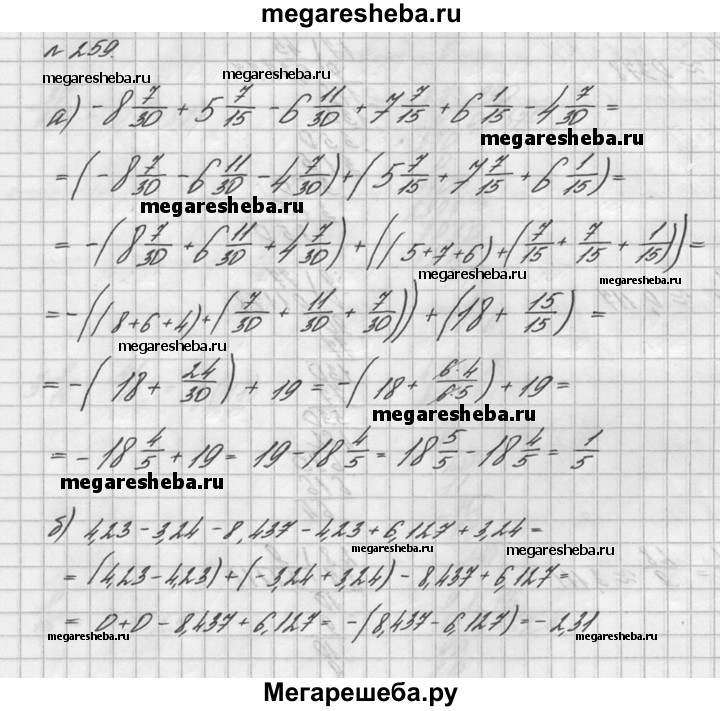 megaresheba.ru
№ 259.
megaresheba.ru megaresheba.ru
а) -8 7/30 + 5 7/15 - 6 11/30 + 7 7/15 + 6 1/15 - 4 7/30 =
megaresheba.ru
= (-8 7/30 - 6 11/30 - 4 7/30) + (5 7/15 + 7 7/15 + 6 1/15) =
megaresheba.ru
= -(8 7/30 + 6 11/30 + 4 7/30) + ((5+7+6) + (7/15 + 7/15 + 1/15)) =
megaresheba.ru megaresheba.ru
= -((8+6+4) + (7/30 + 11/30 + 7/30)) + (18 + 15/15) =
megaresheba.ru
= -(18 + 24/30) + 19 = -(18 + 6·4/6·5) + 19 =
megaresheba.ru
= -18 4/5 + 19 = 19 - 18 4/5 = 18 5/5 - 18 4/5 = 1/5
megaresheba.ru
б) 4,23 - 3,24 - 8,437 - 4,23 + 6,127 + 3,24 =
megaresheba.ru megaresheba.ru
= (4,23 - 4,23) + (-3,24 + 3,24) - 8,437 + 6,127 =
= 0+0 - 8,437 + 6,127 = -(8,437 - 6,127) = -2,31
megaresheba.ru megaresheba.ru megaresheba.ru
Мегарешеба.ру